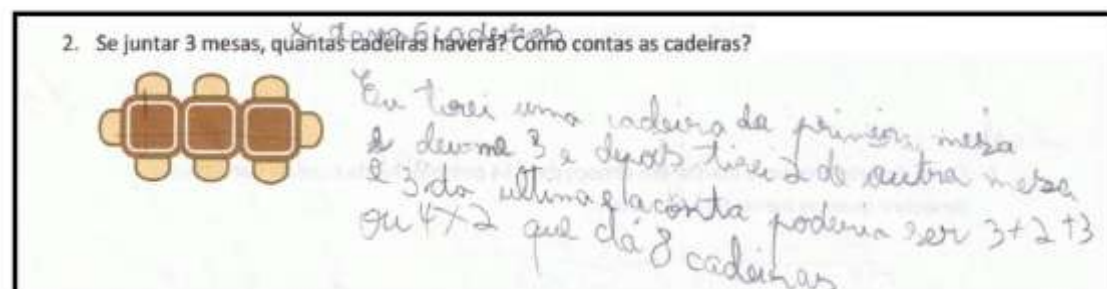 2. Se juntar 3 mesas, quantas cadeiras haverá? Como contas as cadeiras?
Eu tirei uma cadeira da primeira mesa
e deu-me 3 e depois tirei 2 de outra mesa
e 3 da ultima e a conta poderia ser 3+2+3
ou 4×2 que dá 8 cadeiras